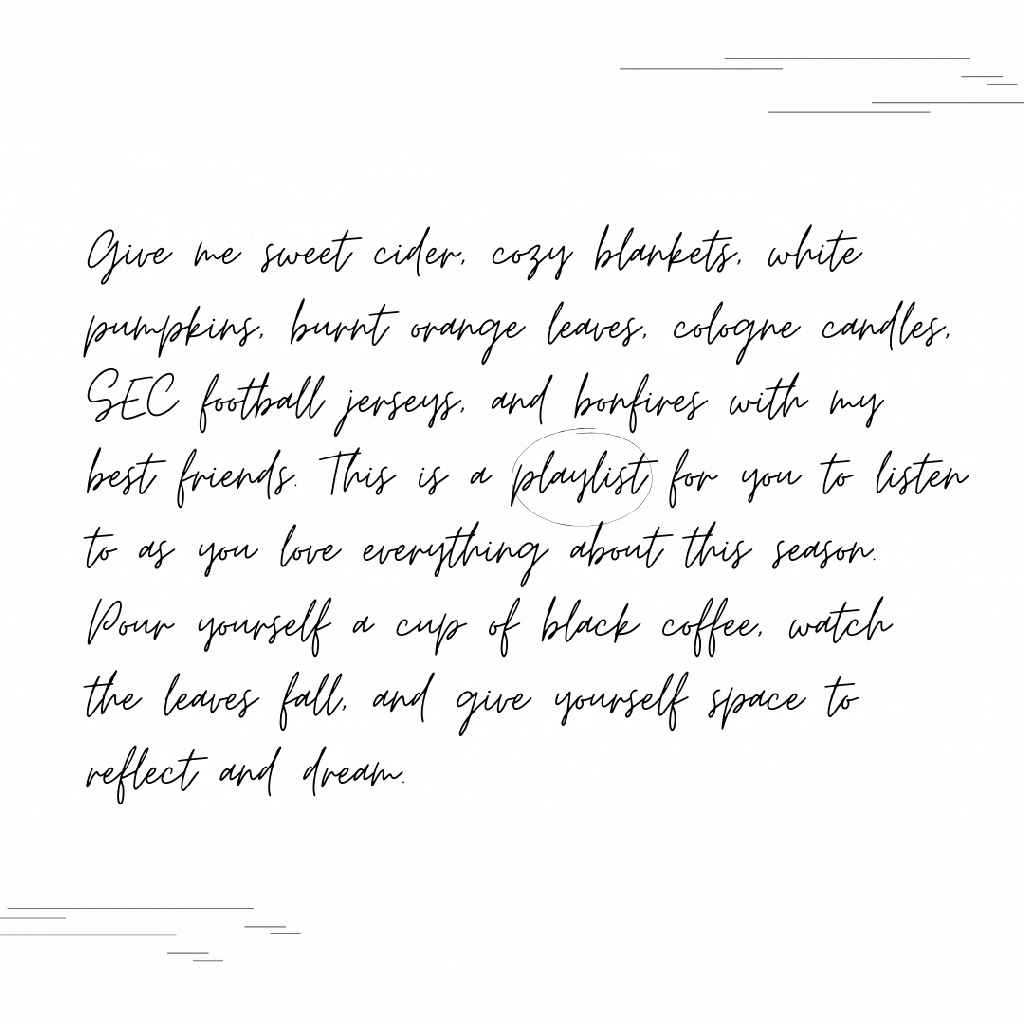 Give me sweet cider, cozy blankets, white
pumpkins, burnt orange leaves, cologne candles,
SEC football jerseys, and bonfires with my
best friends. This is a playlist for you to listen
to as you love everything about this season.
Pour yourself a cup of black coffee, watch
the leaves fall, and give yourself space to
reflect and dream.